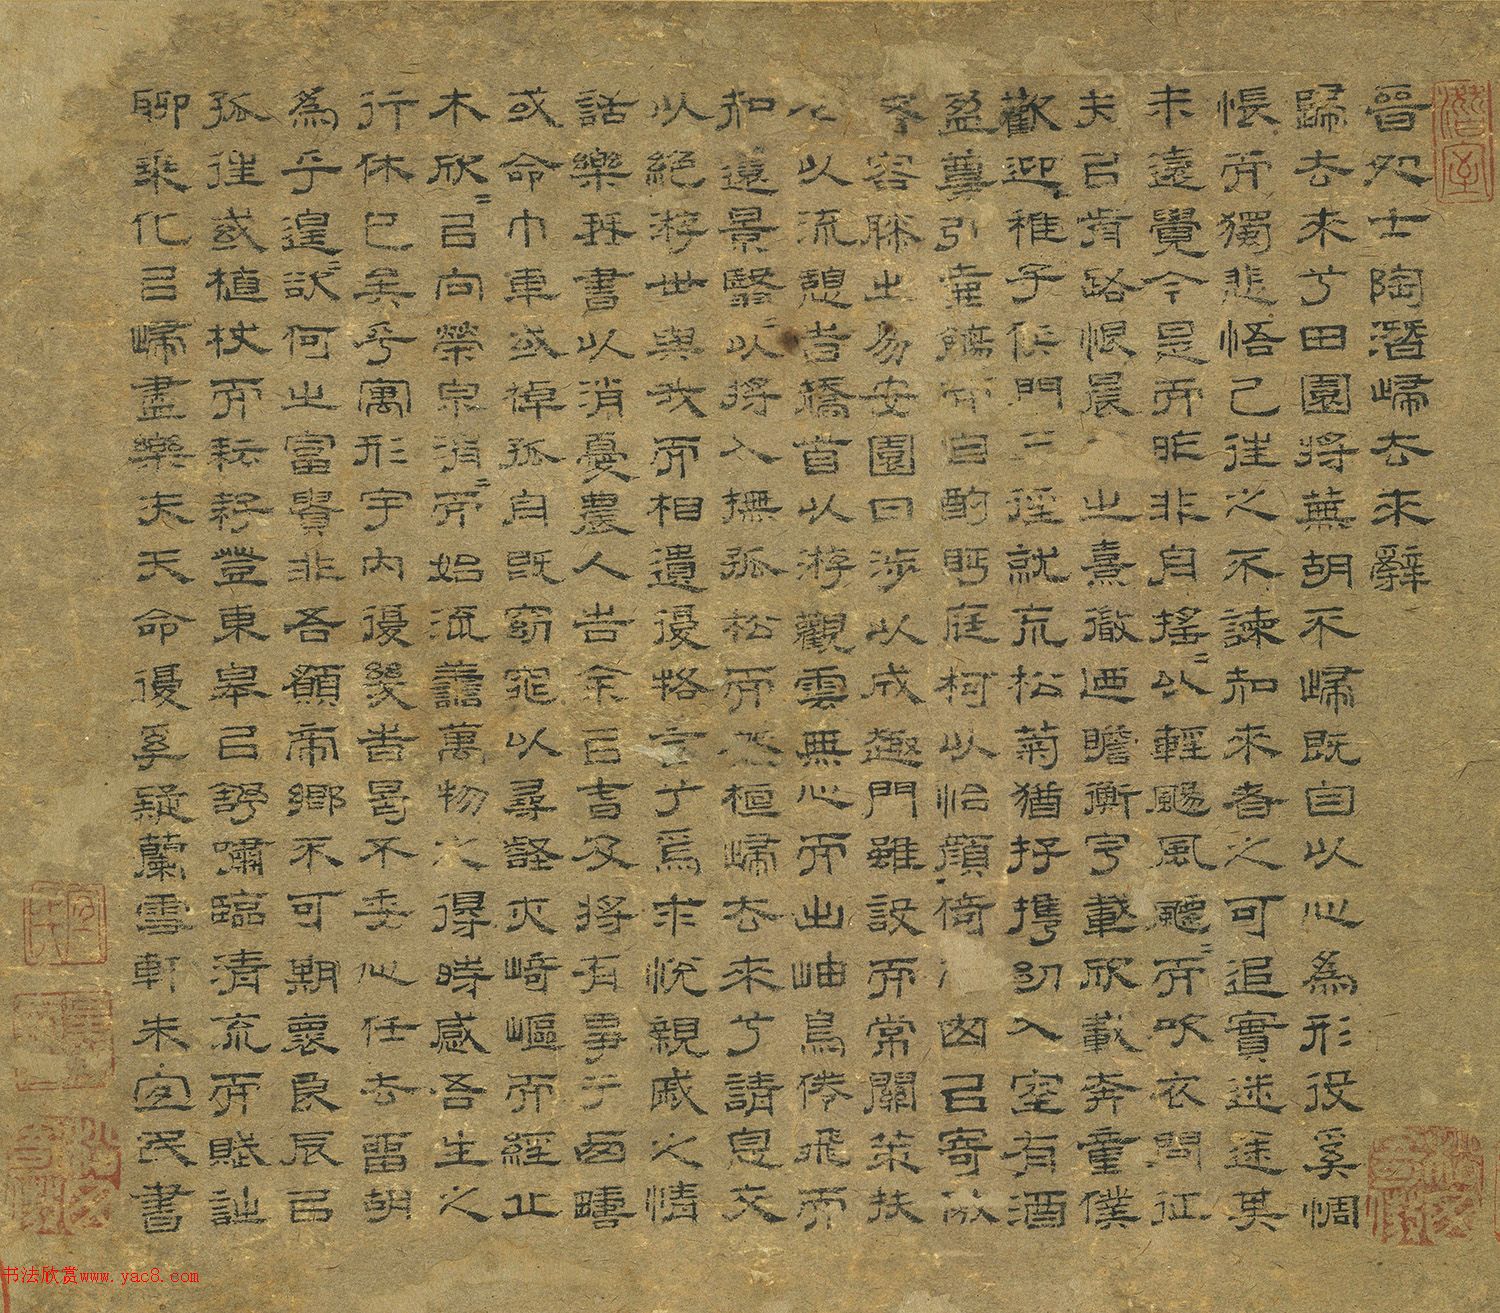 晉処士陶潛歸去來辭
歸去來兮田園將蕪胡不歸既自以心為形役奚惆
悵而獨悲悟已往之不諫知來者之可追實迷途其
未遠覺今是而昨非舟搖〻以輕颺風飄〻而吹衣問征
夫以前路恨晨之熹微迺瞻衡宇載欣載奔童僕
歡迎稚子候門三徑就荒松菊猶存攜幼入室有酒
盈尊引壺觴而自酌眄庭柯以怡顏倚窗以寄傲
容膝之易安園日涉以成趣門雖設而常關策扶
老以流憩時矯首以游觀雲無心而出岫鳥倦飛而
知還景翳〻以將入撫孤松而盤桓歸去來兮請息交
以絕游世與我而相遺復駕言兮焉求悅親戚之情
話樂琴書以消憂農人告余以春及將有事于西疇
或命巾車或棹孤舟既窈窕以尋壑亦崎嶇而經丘
木欣〻以向榮泉涓〻而始流善萬物之得時感吾生之
行休已矣乎寓形宇內復幾時曷不委心任去留胡
為乎遑〻欲何之富貴非吾願帝鄉不可期懷良辰以
孤往或植杖而耘耔登東皋以舒嘯臨清流而賦詩
聊乘化以歸盡樂夫天命復奚疑蘭雪軒朱宜民書
书法欣赏www.yac8.com